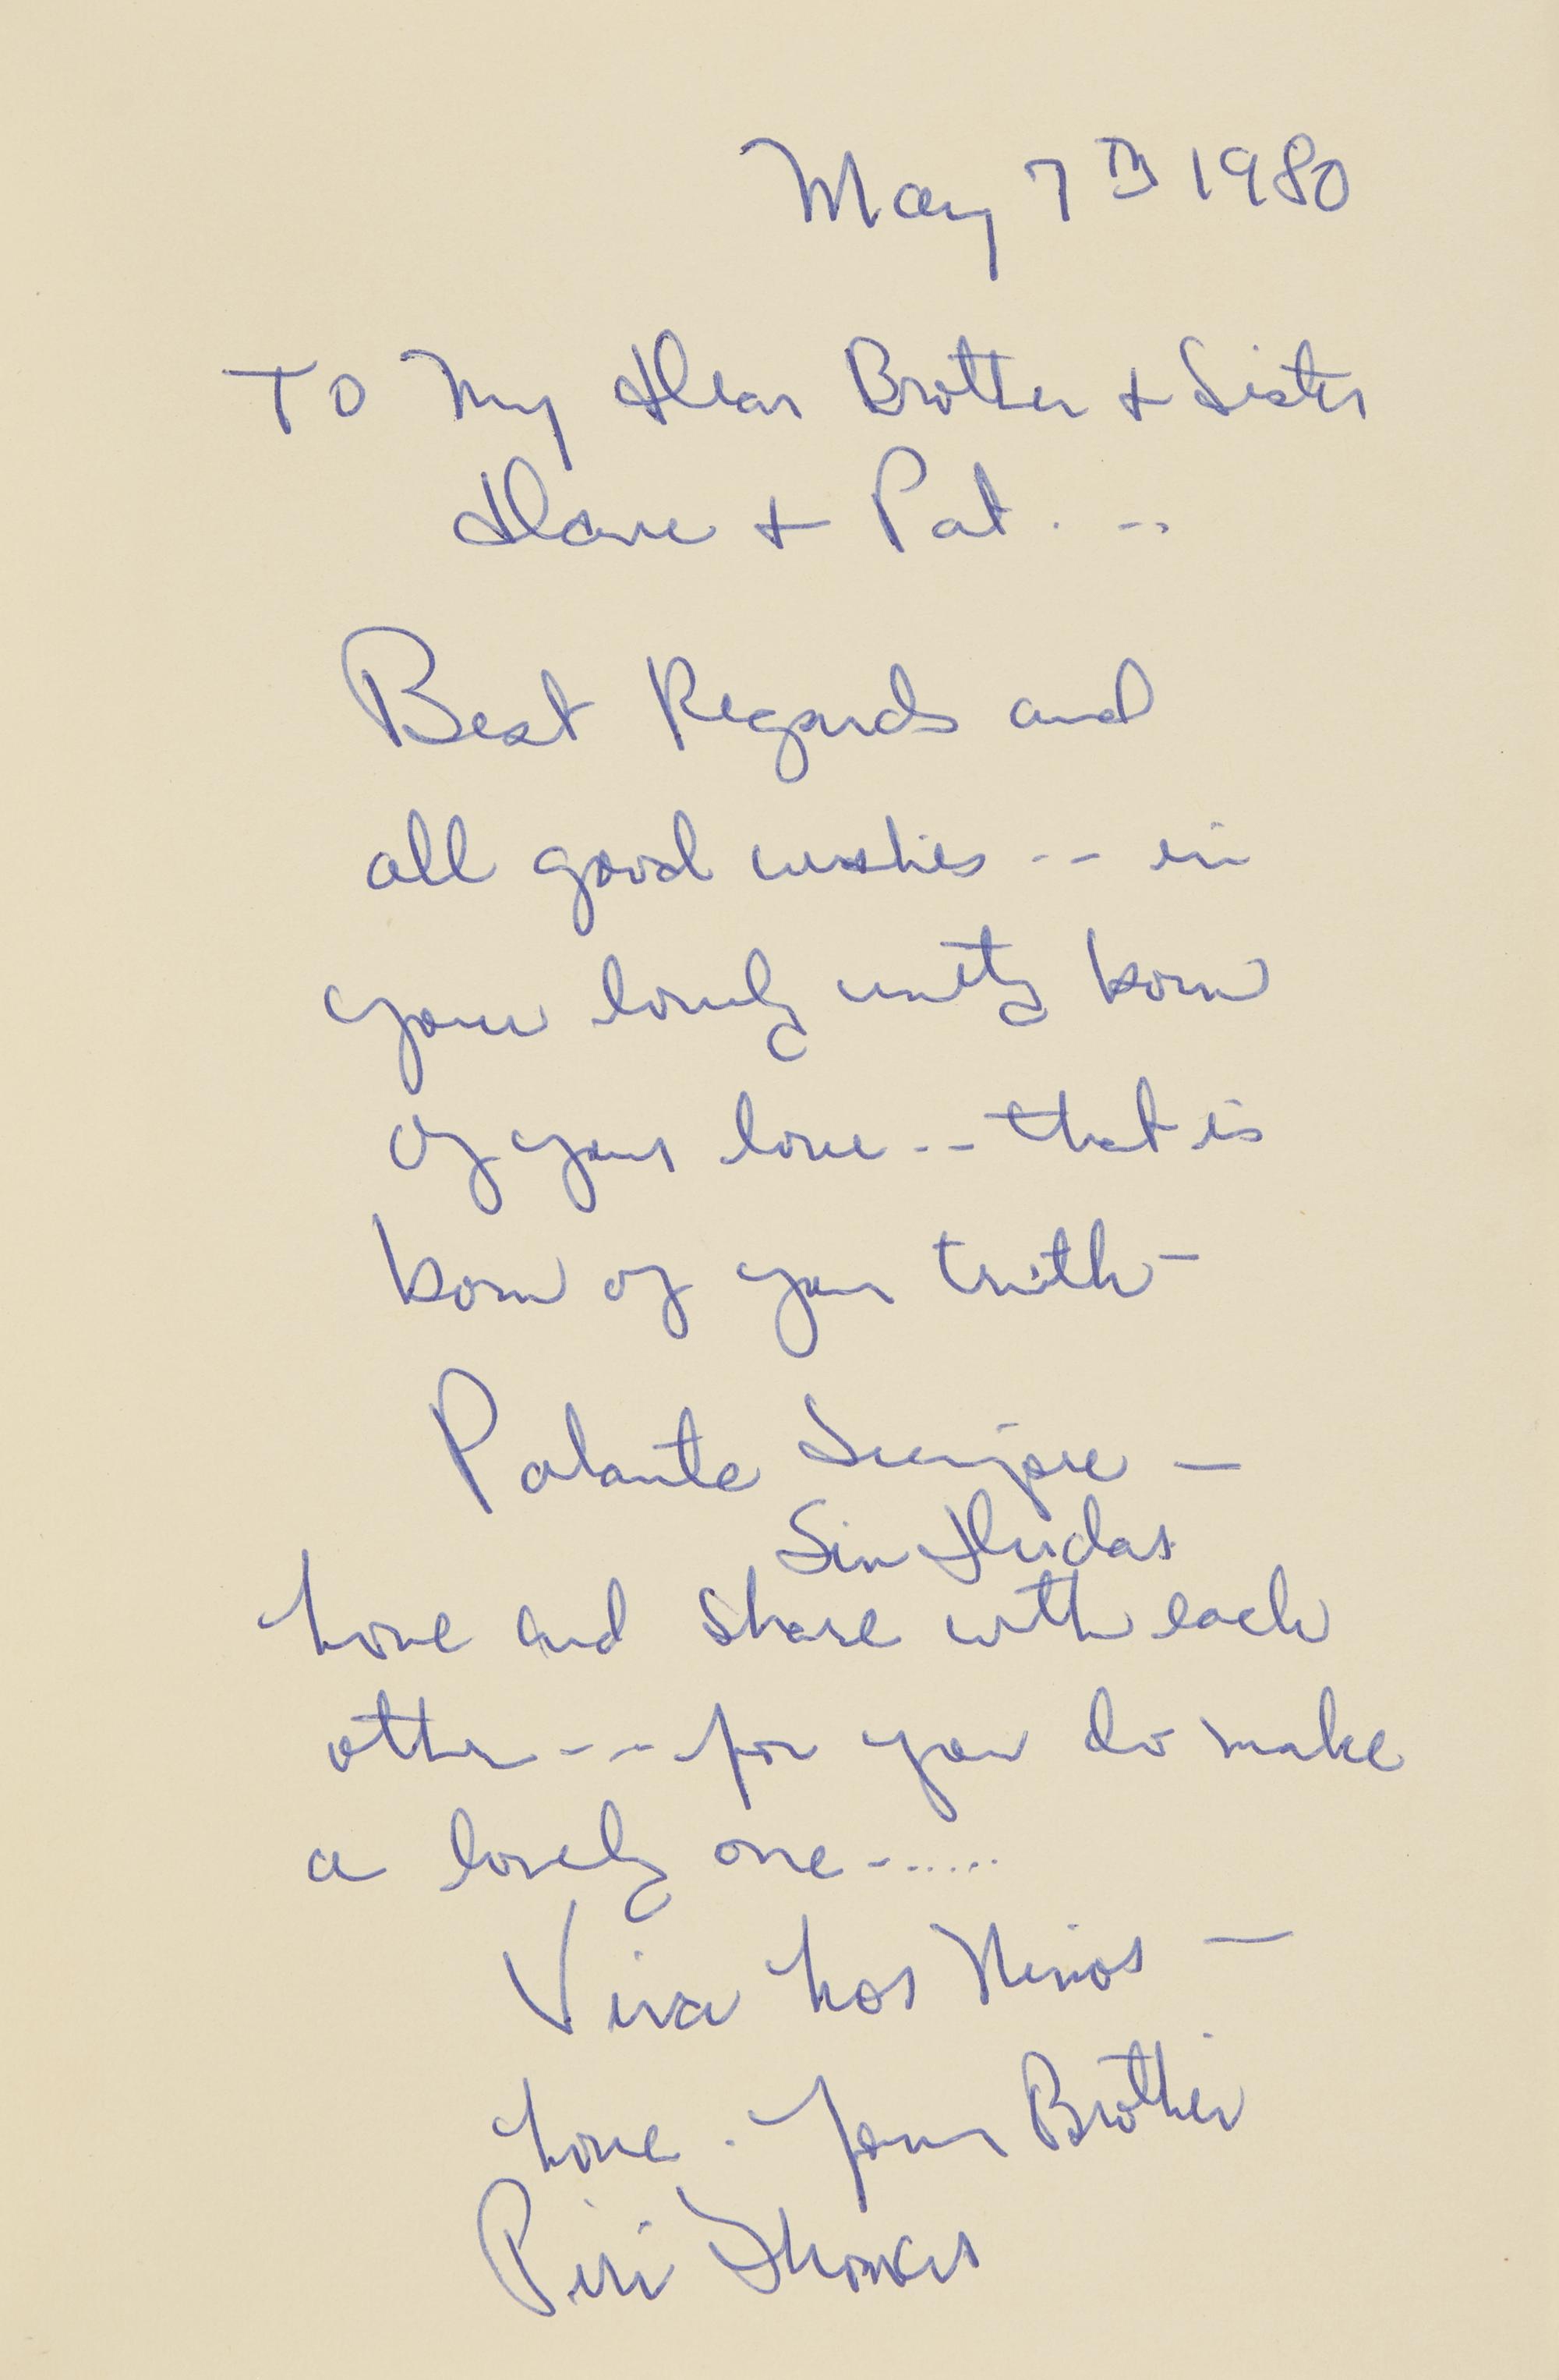 May 7TH 1980
To My Dear Brother + Sister
Dave + Pat. --
Best Regards and
all good wishes -- in
your lovely unity born
of your love -- that is
born of your truth -
Palante Siempre -
Sin Dudas
Love and share with each
other --- for you do make
a lovely one-......
Viva Los Ninos -
Love. Your Brother
Piri Thomas